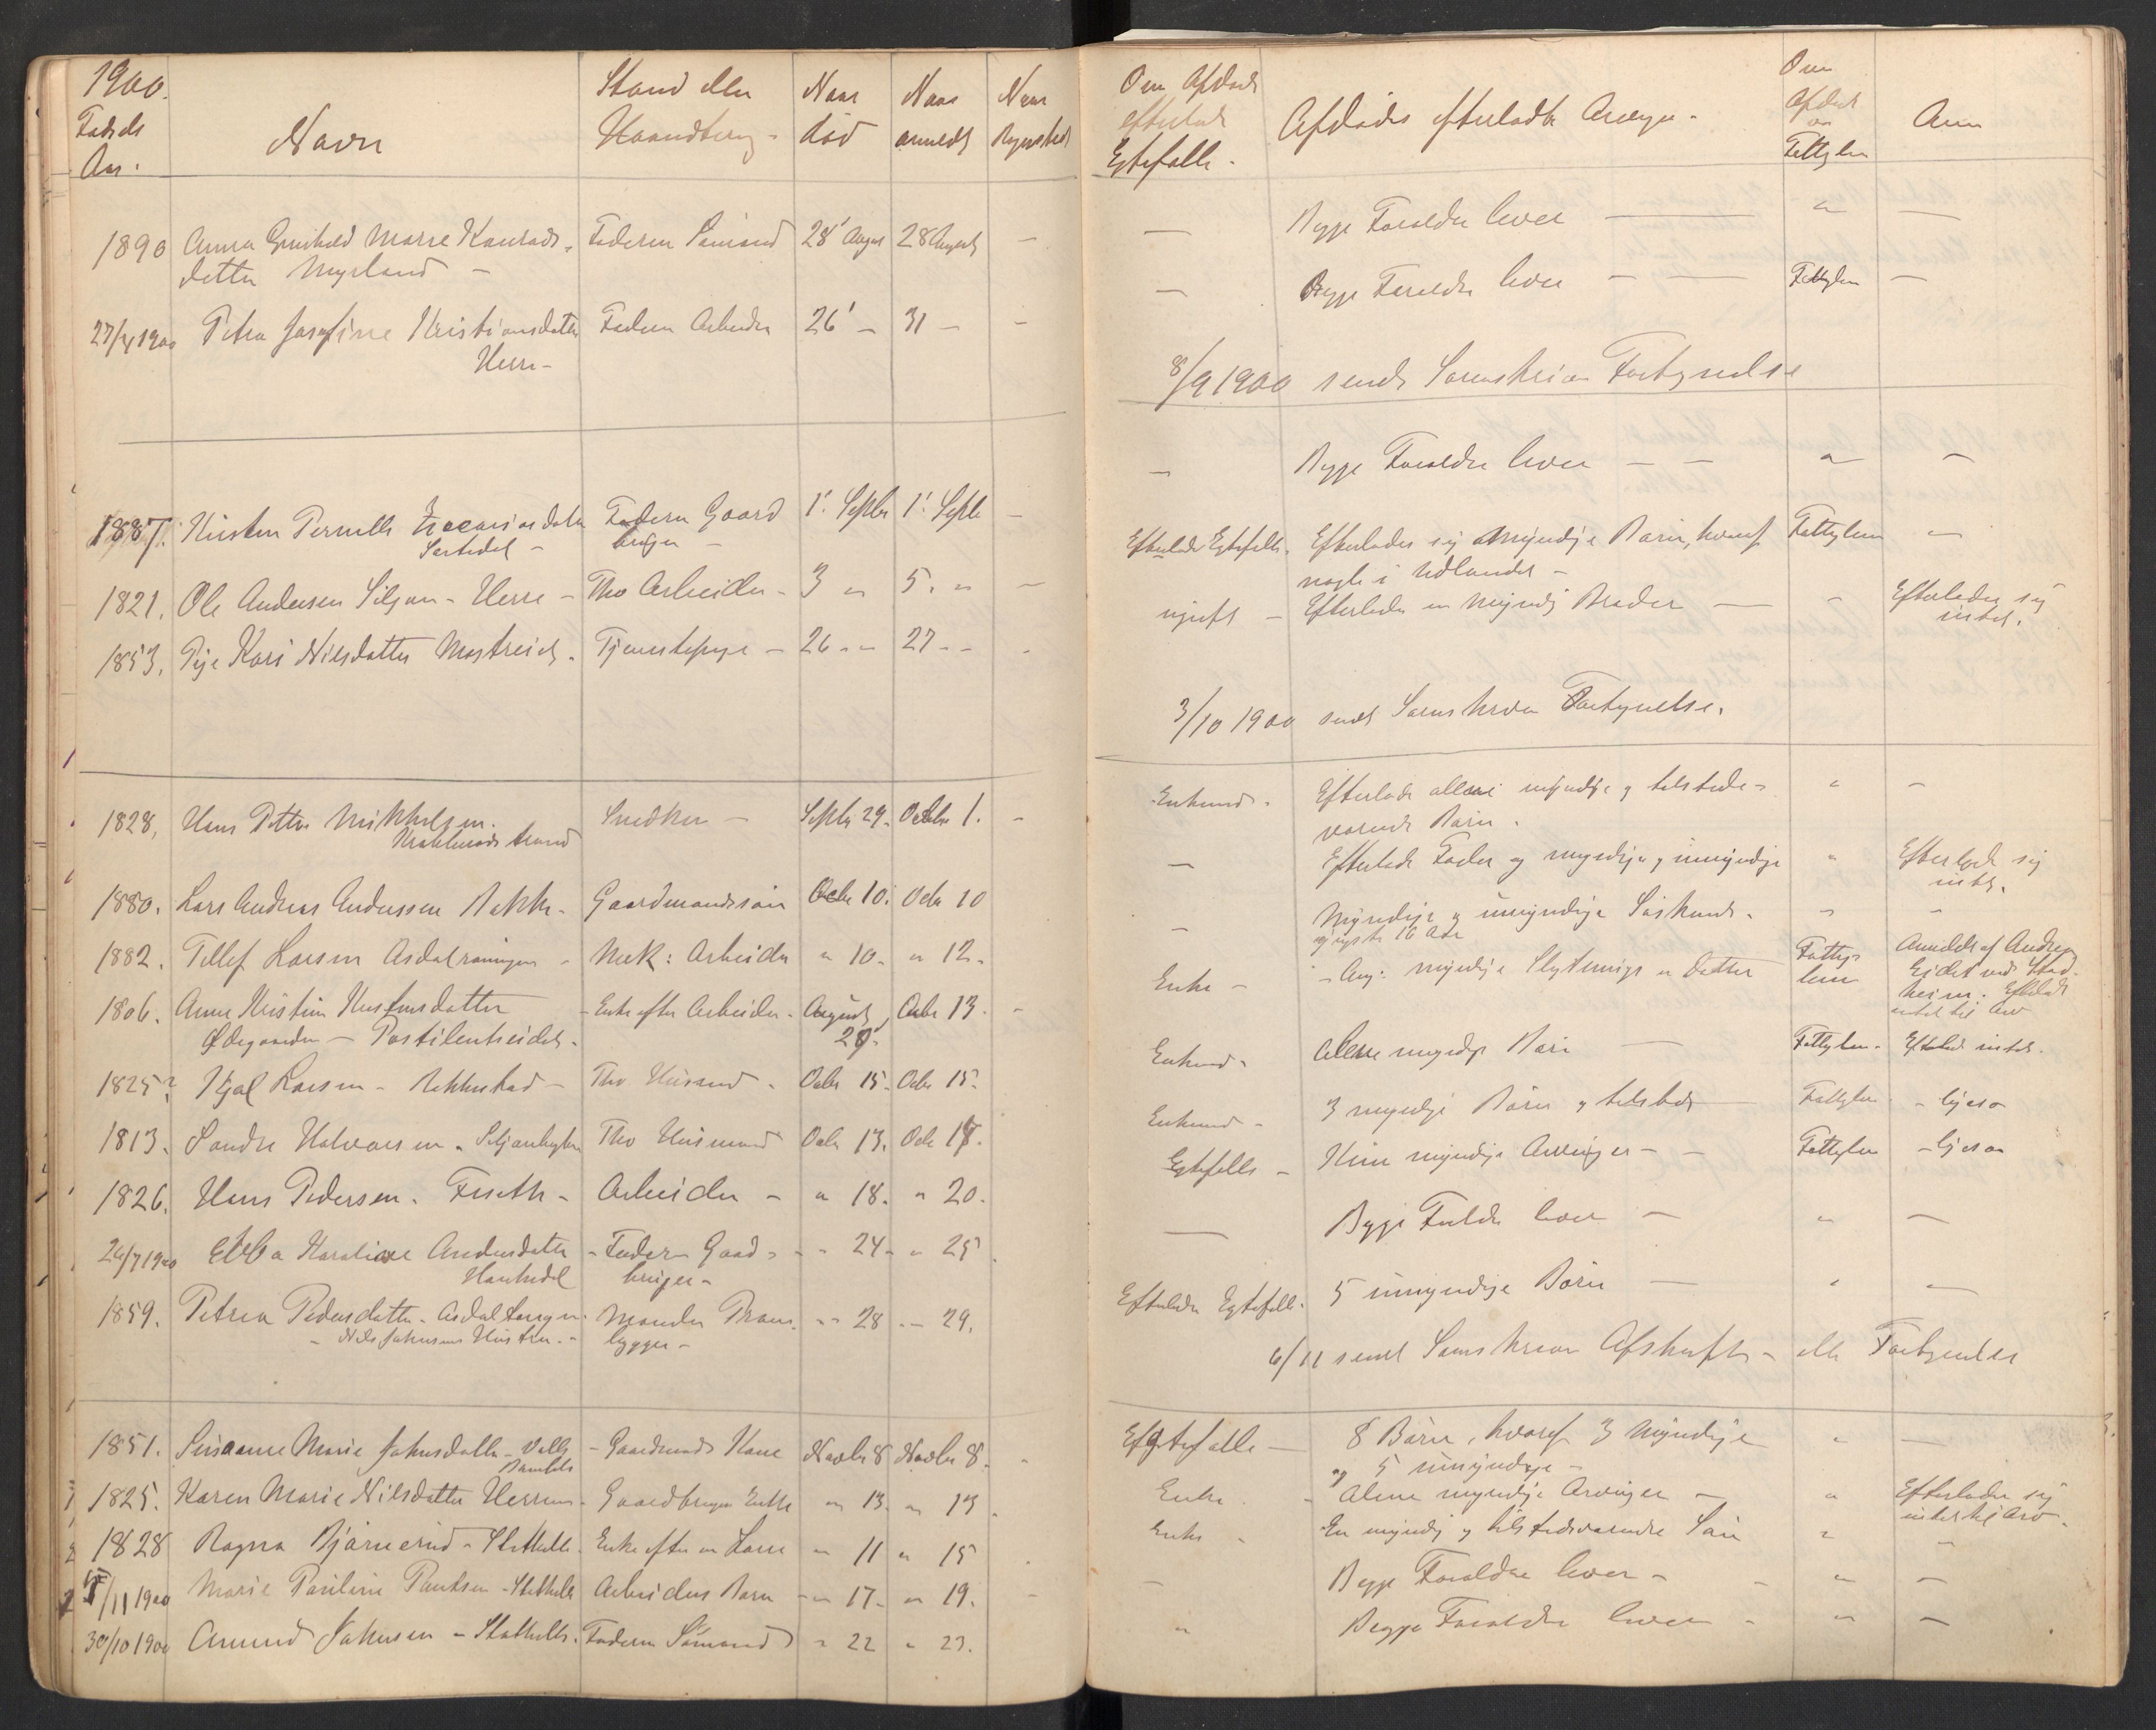 1900.
Fødsels Aar.
Navn
Stand eller Haandtering
Naar død
Naar anmeldt
Naar
1890 Anna Marie Konrads-
datter Myrland —
Faderen Sømand 28' August 28 August —
27/4 1900 Petra Josefine Kristiansdatter
Herre —
Faderen Arbeider 26' — 31 — —
1887. Kirsten Pernille
Faderen Gaard
bruger —
1' Septbr 1' Septb —
1821. Ole Andersen Siljan - Herre — Thv Arbeider — 3 " 5. " —
1853. Pige Kari Nilsdatter — Tjenestepige — 26 - " 27 - -
1828, Hans Petter Mikkelsen.
strand
Snedker — Septbr 29. Octbr 1. -
1880. Lars Andreas Anderssen Rakke. Gaardmandssøn Octbr 10. Octb 10
1882. Tellef Larsen — Mek: Arbeider " 10. " 12.
1806. Anne Kristine
Ødegaarden —
Enke efter Arbeider. August 29. Octbr 13.
1825? Kjøl Larsen — Rakkestad — Thv. Husmand. Octbr 15. Octbr 15.
1813. Sondre Halvorsen. Thv Husmand Octb 13. Octb 17.
1826. Hans Pedersen. — Arbeider — " 18. " 20.
24/7 1900 Ebba Karoline Andersdatter
- Faderen Gaard-
bruger -
- 24 - " 25
1859. Petrea Pedersdatter.
- Nils Johnsens Hustru. -
Manden
bygger -
- " 28 - - 29.
1851. Susanne Marie Johnsdatter - Valle
Bamble
- Gaardmands Kone Novbr 8 Novbr 8. -
1825. Karen Marie Nilsdatter Herre — Gaardbruger Enke " 13. " 13
1828 Ragna Bjørnerud - Stathelle. Enke efter en Lods " 11 " 15
/11 1900 Marie Pauline — Stathelle Arbeiders Barn - " 17. " 19.
30/10 1900 Amund Johnsen — Stathelle. Faderen Sømand " 22 " 23.
Om Afdøde
efterlod
Egtefælle.
Afdødes efterladte Arvinger.
Om
Afdøde
var
Fattiglem
Anm
— Begge Forældre lever — " —
— Begge Forældre lever — — Fattiglem —
8/9 1900 sendt Sorenskriver Fortegnelse
— Begge Forældre lever — — " —
Efterlader Egtefælle. Efterlader sig Myndige Børn, hvoraf
nogle i Udlandet —
Fattiglem "
ugift — Efterlader en Myndig Broder — - Efterlader sig
intet.
3/10 1900 sendt Sorenskriver Fortegnelse.
Enkemand. Efterlod allene myndige og tilstede-
værende Børn.
" —
— Efterlod Fader og myndige og umyndige
" Efterlod sig
intet.
— Myndige og umyndige Søskende.
yngste 16 Aar
" —
Enke — - Ang: myndige en Datter
Fattig-
lem
Anmeldt af Andreas
Eidet ved Stad-
heim. Efterlod
intet til Arv
Enkemand. Allene myndige Børn — Fattiglem. Efterlod intet.
Enkemand — 3 myndige Børn og tilstede — Fattiglem - ligesaa
Egtefælle — Kun myndige Arvinger — — Fattiglem - ligesaa
— Begge Forældre lever — " —
Efterlader Egtefælle. 5 umyndige Børn — " —
6/11 sendt Sorenskriver Afskrift — eller Fortegnelse
Egtefælle — 8 Børn, hvoraf 3 Myndige
og 5 umyndige —
" —
Enke - Alene myndige Arvinger — " Efterlader sig
intet til Arv.
Enke - En myndig og tilstedeværende Søn " —
— Begge Forældre lever — - " —
" Begge Forældre lever - " —